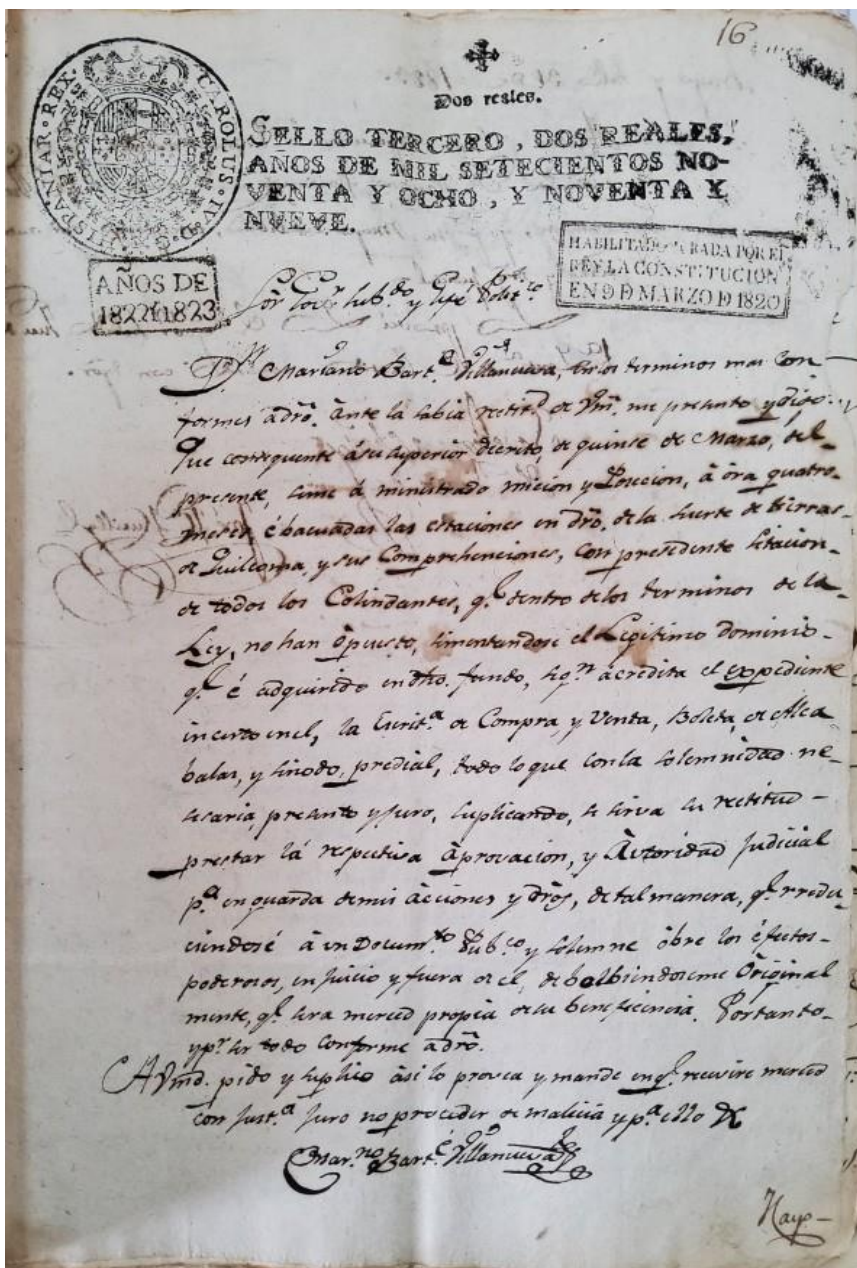 16
Dos reales.
SELLO TERCERO, DOS REALES,
AÑOS DE MIL SETECIENTOS NO-
VENTA Y OCHO, Y NOVENTA Y
NUEVE.
CAROLUS·IV·D·G·HISPANIAR·REX·
AÑOS DE
1822Y1823
HABILITADO JURADA POR EL
REY LA CONSTITUCION
EN 9 D MARZO D 1820
Sor Gov.r Sub.do y Gefe Polit.co
D.n Mariano Bart.e Villanueva, en los terminos mas con
formes a dro. ante la sabia rectit.d de Vm. me presento y digo.
Que consequente á su superior decreto, de quinse de Marzo, del
presente, seme á ministrado micion y Posecion, á óra quatro
meses é bacuadas las estaciones en dro, de la suerte de tierras
de Quilcoma, y sus Comprehenciones, con presedente sitacion
de todos los Colindantes, q.e dentro delos terminos de la
Ley, no han ópuesto, simentandose el Legitimo dominio
q.e é adquirido en dho. fundo, seg.n acredita el expediente
incerto en el, la Escrit.a de Compra, y Venta, Boleta, de Alca
balas, y sinodo, predial, todo lo que con la solemnidad ne-
sesaria, presento y juro, suplicando, se sirva su rectitud
prestar lá respetiva áprovacion, y Autoridad Judicial
p.a en guarda demis ácciones y dros, detal manera, q.e rredu
ciendosé á un Docum.to Pub.co y solemne óbre los éfectos
poderosos, en juicio y fuera de el, debolbiendoseme Original
mente, q.e sera merced propia de su beneficencia. Portanto
y p.r ser todo conforme a dro.
A Vmd. pido y suplico ási lo provea y mande en q.e recivire merced
con just.a juro no proceder de malicia y p.a ello &
Mar.no Bart.e Villanueva
Mayo